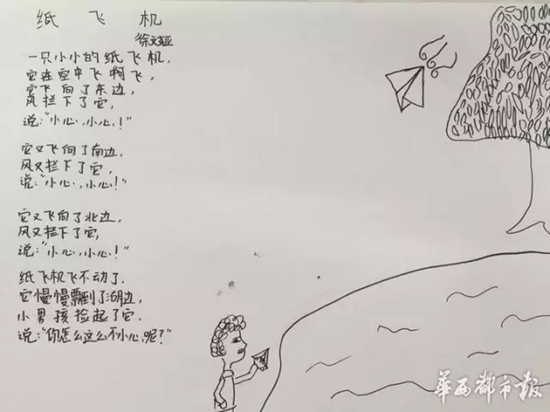 纸飞机
徐文娅
一只小小的纸飞机，
它在空中飞啊飞，
它飞向了东边，
风拦下了它，
说：“小心，小心！”
它又飞向了南边，
风又拦下了它，
说：“小心，小心！”
它又飞向了北边，
风又拦下了它，
说：“小心，小心！”
纸飞机飞不动了，
它慢慢飘到了湖边，
小男孩捡起了它，
说：“你怎么这么不小心呢？”
华西都市报